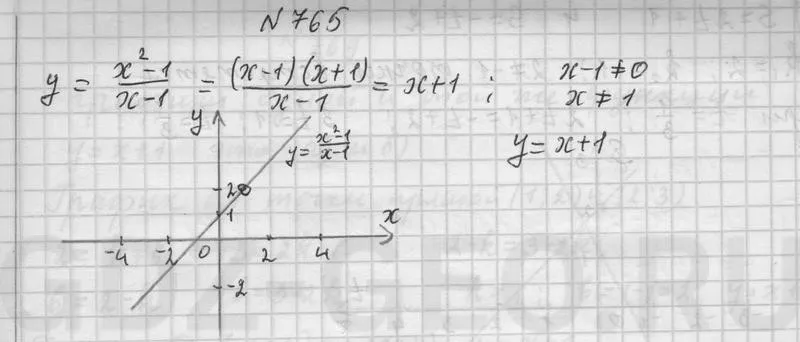 N 765
y = \frac{x^2-1}{x-1} = \frac{(x-1)(x+1)}{x-1} = x+1 ; x-1 ≠ 0
x ≠ 1
y = x+1
y
y = \frac{x^2-1}{x-1}
2
1
x
-4 -2 0 2 4
-2
GDZ-GEO.RU